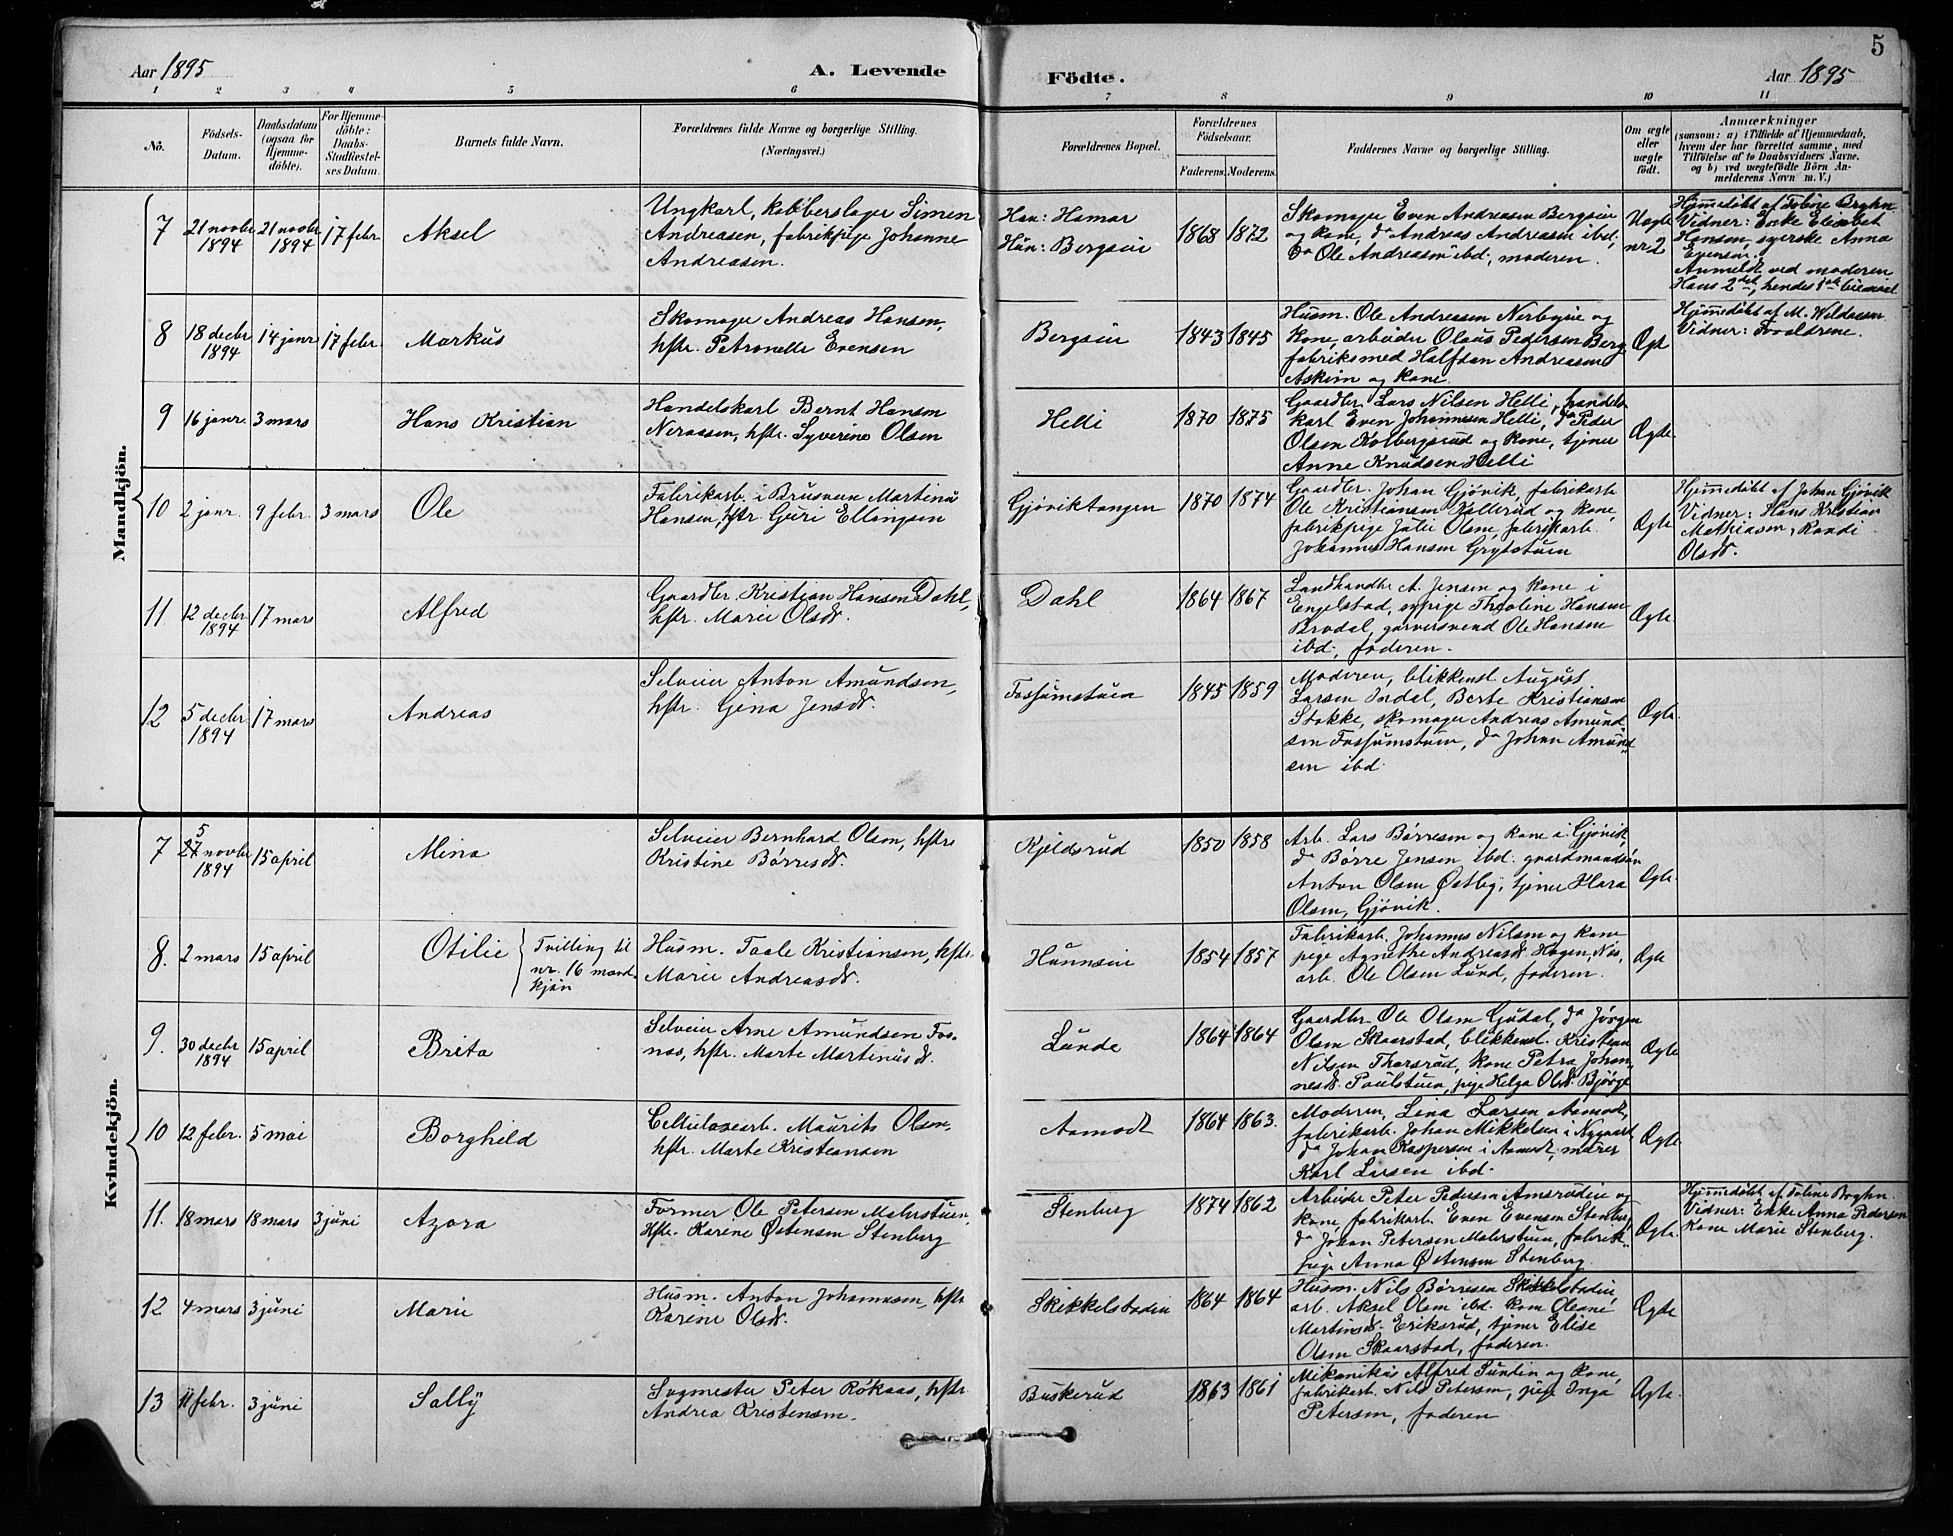 5
Aar 1895
A. Levende
Födte.
Aar 1895
1 2 3 4 5 6 7 8 9 10 11
No.
Födsels-
Datum.
Daabsdatum
(ogsaa for
Hjemme-
döbte).
For Hjemme-
döbte:
Daabs-
Stadfæstel-
ses Datum.
Barnets fulde Navn.
Forældrenes fulde Navne og borgerlige Stilling.
(Næringsvei.)
Forældrenes Bopæl.
Forældrenes
Födselsaar.
Faderens. Moderens.
Faddernes Navne og borgerlige Stilling.
Om ægte
eller
uægte
født.
Anmærkninger
(saasom: a) i Tilfælde af Hjemmedaab,
hvem der har forrettet samme, med
Tilføielse af to Daabsvidners Navne,
og b) ved uægtefödte Börn An-
melderens Navn m. V.)
Mandkjön.
7
21 novbr
1894
21 novbr
1894
17 febr.
Aksel
Ungkarl, kobberslager Simen
Andreasen, fabrikpige Johanne
Andreasen.
Han: Hamar
Hun: Bergseie
1868 1872
Skomager Even Andreasen Bergseie
og kone, do Andreas Andreasen ibd,
do Ole Andreasen ibd., moderen.
Uægte
nr 2
Hjemmedøbt af Toline Boghn
Vidner: Enke Elisabet
Hansen, syerske Anna
Evensen.
Anmeldt ved moderen
Hans 2det, hendes 1ste leiermaal
8
18 decbr
1894
14 janr
17 febr.
Markus
Skomager Andreas Hansen,
hstr. Petronelle Evensen
Bergseie
1843 1845
Husm. Ole Andreasen Nerbyeie og
kone, arbeider Olaus Pedersen Berg
fabriksmed Halfdan Andreasen
Askim og kone.
Ægt
Hjemmedøbt af M. Weldesen
Vidner: Forældrene.
9
16 janr.
3 mars
Hans Kristian
Handelskarl Bernt Hansen
Neraasen, hstr. Syverine Olsen
Helli
1870 1875
Gaardbr. Lars Nilsen Helli, handels
karl Even Johannesen Helli, do Peder
Olsen Kolbergsrud og kone, tjener
Anne Knudsen Helli
Ægte.
10
2 janr.
9 febr.
3 mars
Ole
Fabrikarb. i Brusveen Martinus
Hansen, hstr. Guri Ellingsen
Gjøviktangen
1870 1874
Gaardbr. Johan Gjøvik, fabrikarb
Ole Kristiansen Kallerud og kone,
fabrikpige Julie Olsen, fabrikarb.
Johannes Hansen Grytstuen
Ægte
Hjemmedøbt af Johan Gjøvik
Vidner: Hans Kristian
Mathiasen, Randi
Olsdr.
11
12 decbr
1894
17 mars
Alfred
Gaardbr. Kristian Hansen Dahl,
hstr. Marie Olsdr.
Dahl
1864 1867
Landhandler A. Jensen og kone i
Engelstad, sypige Theoline Hansen
Brodal, garversvend Ole Hansen
ibd, faderen.
Ægte.
12
5 decbr
1894
17 mars
Andreas
Selveier Anton Amundsen,
hstr. Gina Jensdr.
Fossumstuen
1845 1859
Moderen, blikkensl August
Larsen Indal, Berte Kristiansen
Stokke, skomager Andreas Amund
sen Fossumstuen, do Johan Amund
sen ibd.
Ægte.
Kvindekjön.
7
5
27 novbr
1894
15 april
Mina
Selveier Bernhard Olsen, hstr
Kristine Børresdr.
Kjeldsrud
1850 1858
Arb. Lars Børresen og kone i Gjøvik,
do Børre Jensen ibd. gaardmandsøn
Anton Olsen Østby, tjener Klara
Olsen, Gjøvik.
Ægte.
8.
2 mars
15 april
Otilie
Tvilling til
nr. 16 mand
kjøn
Husm. Taale Kristiansen, hstr.
Marie Andreasdr.
Hunnseie
1854 1857
Fabrikarb. Johannes Nilsen og kone
pige Agnethe Andreasdr. Hagen, Næs,
arb. Ole Olsen Lund, faderen.
Ægte
9.
30 decbr
1894
15 april
Brita
Selveier Arne Amundsen Fos-
næs, hstr. Marte Martinusdr.
Lunde
1864 1864
Gaardbr. Ole Olsen Gudal, do Jørgen
Olsen Skaarstad, blikkensl. Kristian
Nilsen Thorsrud, kone Petra Johan-
nesdr. Paulstuen, pige Helga Olsdr. Bjørge
Ægte
10
12 febr.
5 mai
Borghild
Cellulosearb. Maurits Olsen,
hstr. Marte Kristiansen
Aamodt
1864 1863.
Moderen, Lina Larsen Aamodt,
fabrikarb. Johan Mikkelsen i Nygaard,
do Johan Kaspersen i Aamodt, murer
Karl Larsen ibd.
Ægte.
11.
18 mars
18 mars
3 juni
Azora
Former Ole Petersen Malerstuen,
hstr. Karine Østensen Stenberg
Stenberg
1874 1862
Arbeider Peter Pedersen Amsrudeie og
kone, fabrikarb. Even Evensen Stenberg
do Johan Petersen Malerstuen, fabrik-
pige Anna Østensen Stenberg
Ægte.
Hjemmedøbt af Toline Boghn
Vidner: Enke Anna Pedersen
Kone Marie Stenberg.
12
4 mars
3 juni
Marie
Husm. Anton Johannesen, hstr
Karine Olsdr.
Skikkelstadeie
1864 1864
Husm. Nils Børresen Skikkelstadeie,
arb. Aksel Olsen ibd. kone Oleane
Martinsdr. Eriksrud, tjener Elise
Olsen Skaarstad, faderen.
Ægte
13
11 febr.
3 juni
Sally
Sagmester Peter Røkaas, hstr.
Andrea Kristensen.
Buskerud
1863 1861
Mekanikus Alfred Sundin og kone,
fabrikarb. Nils Petersen, pige Inga
Petersen, faderen
Ægte.